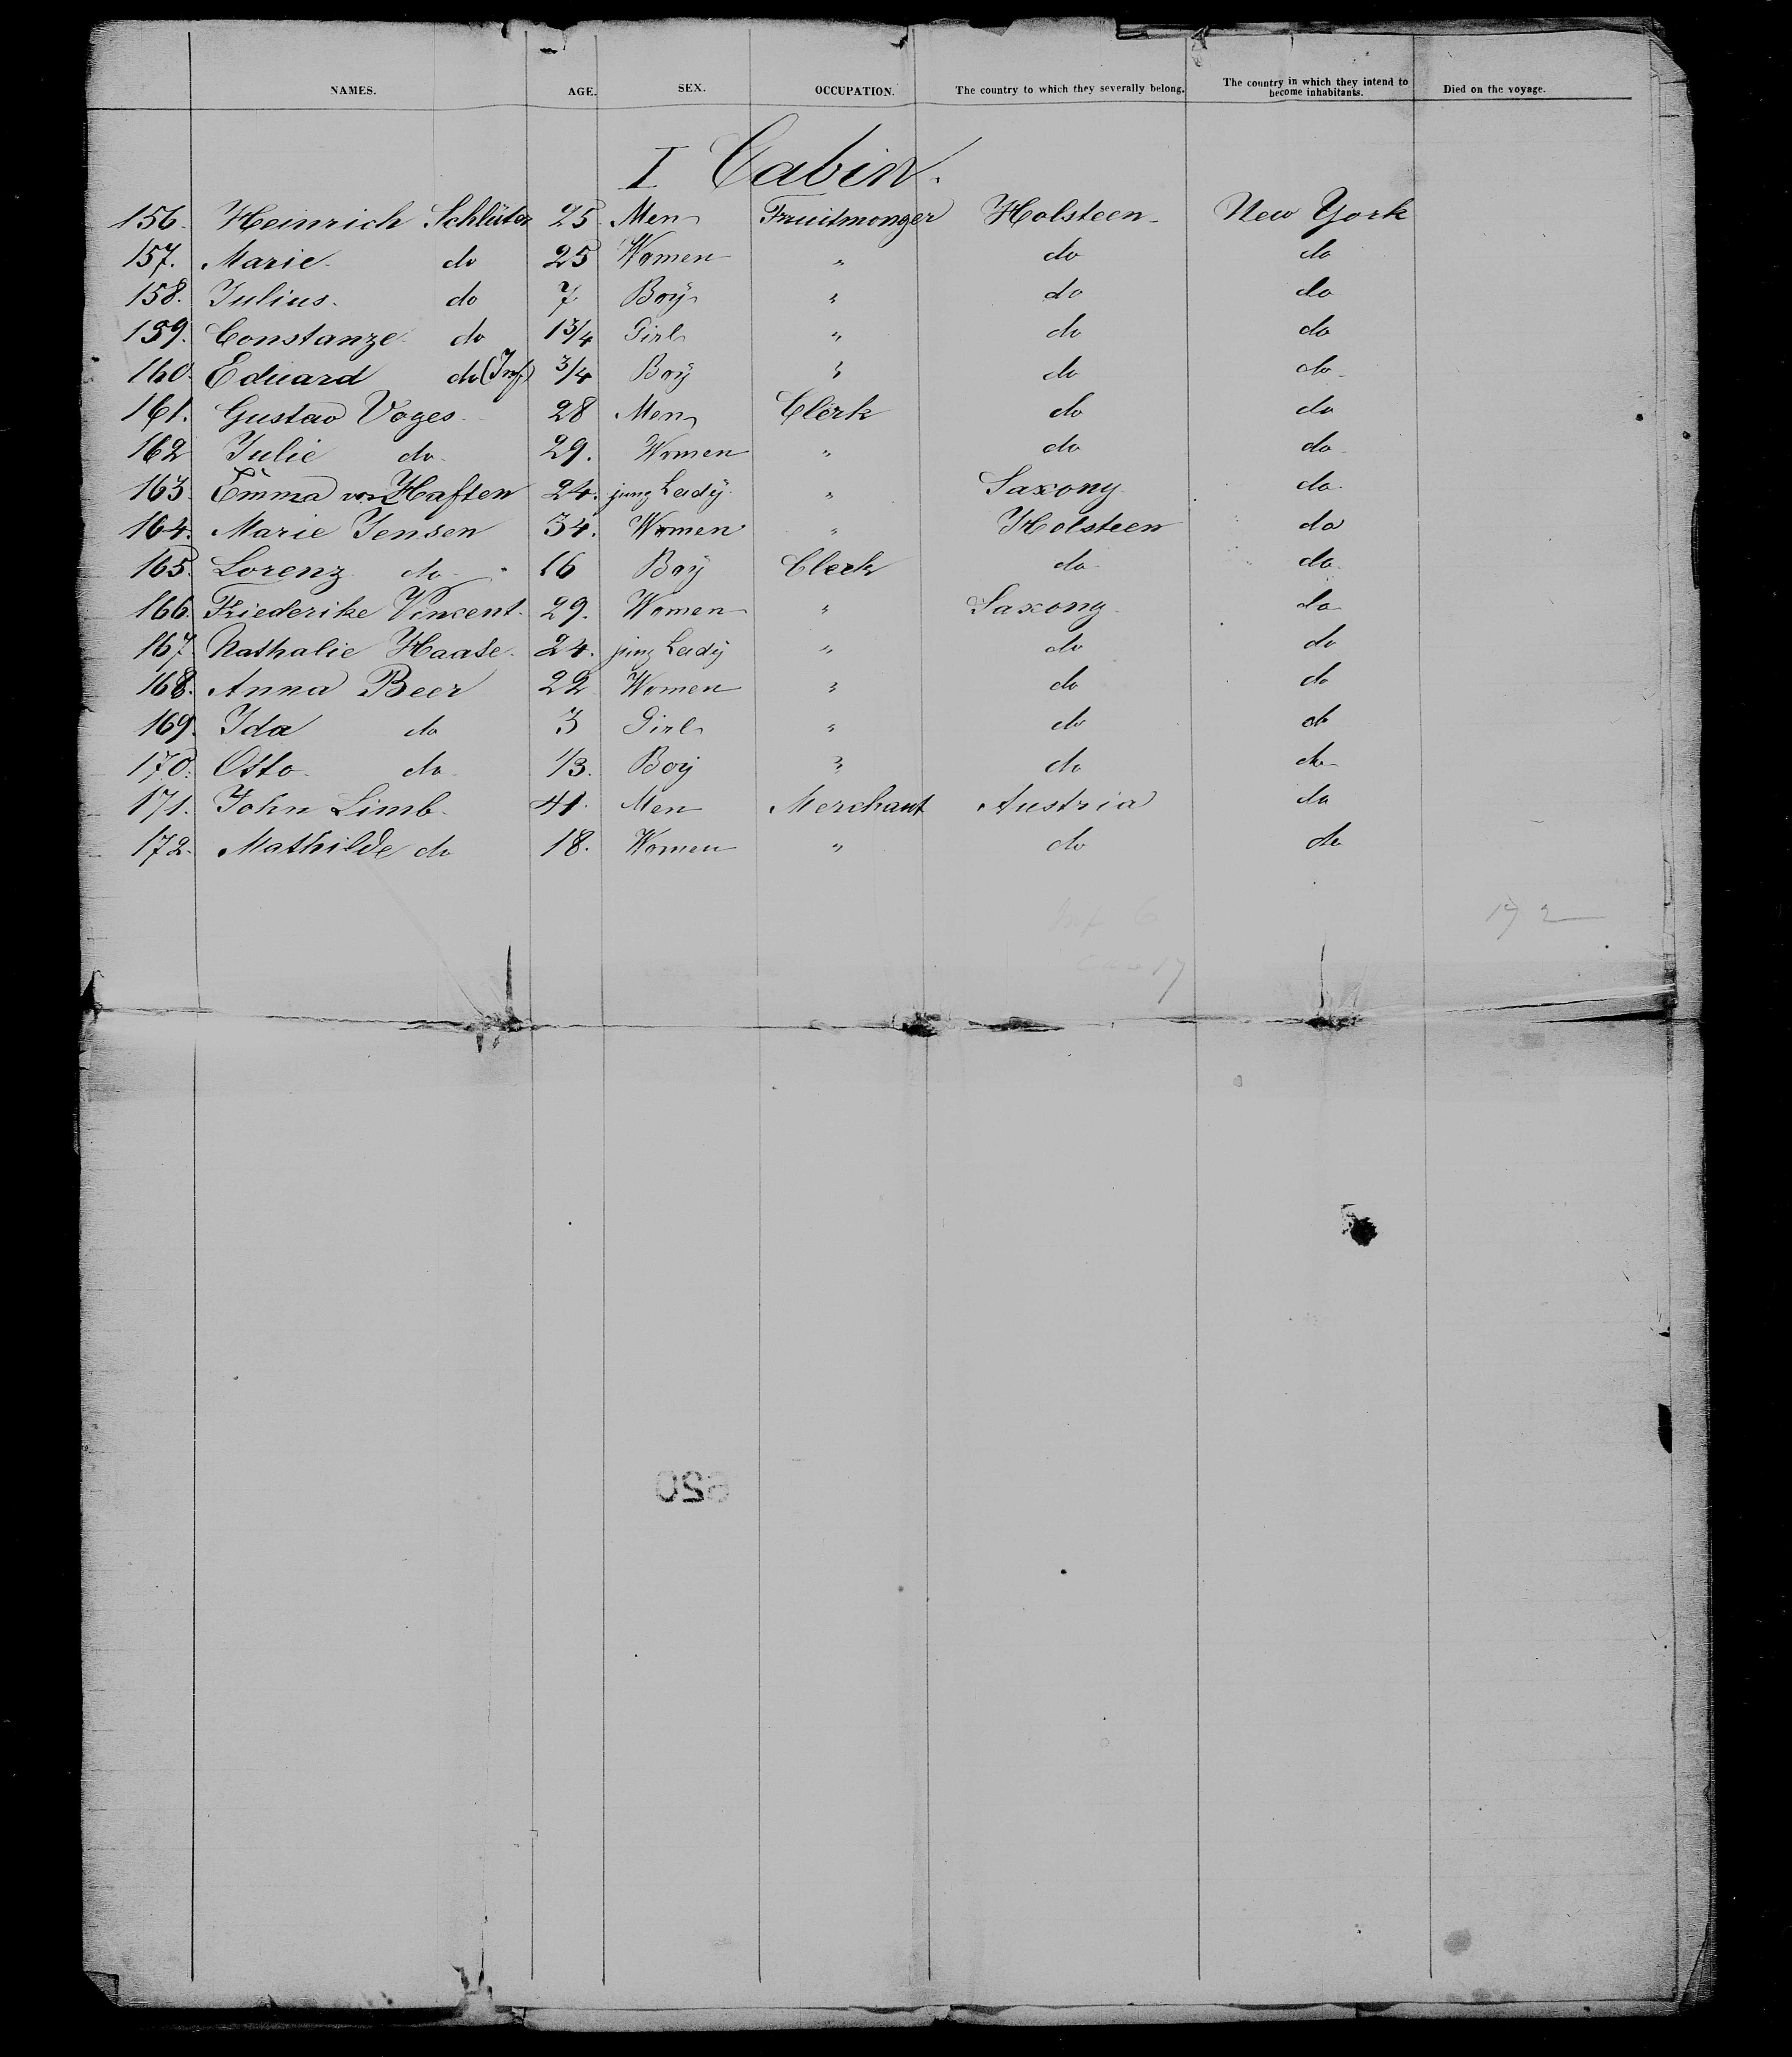 NAMES. AGE. SEX. OCCUPATION. The country to which they severally belong. The country in which they intend to become inhabitants. Died on the voyage.
I Cabin.
156. Heinrich Schlüter 25 Men Fruitmonger Holsteen New York
157. Marie do 25 Women " do do
158. Julius. do 7 Boy " do do
159. Constanze do 1 3/4 Girl " do do
160. Eduard do (Inf) 3/4 Boy " do do
161. Gustav Voges 28 Men Clerk do do
162 Julie do 29. Women " do do
163. Emma von Haften 24. jung Lady " Saxony do
164. Marie Jensen 34. Women " Holsteen do
165. Lorenz do 16 Boy Clerk do do
166. Friederike Vincent 29. Women " Saxony do
167. Nathalie Haase 24. jung Lady " do do
168. Anna Beer 22 Women " do do
169. Ida do 3 Girl " do do
170. Otto do 1/3. Boy " do do
171. John Limb 41. Men Merchant Austria do
172. Mathilde do 18. Women " do do
172
620